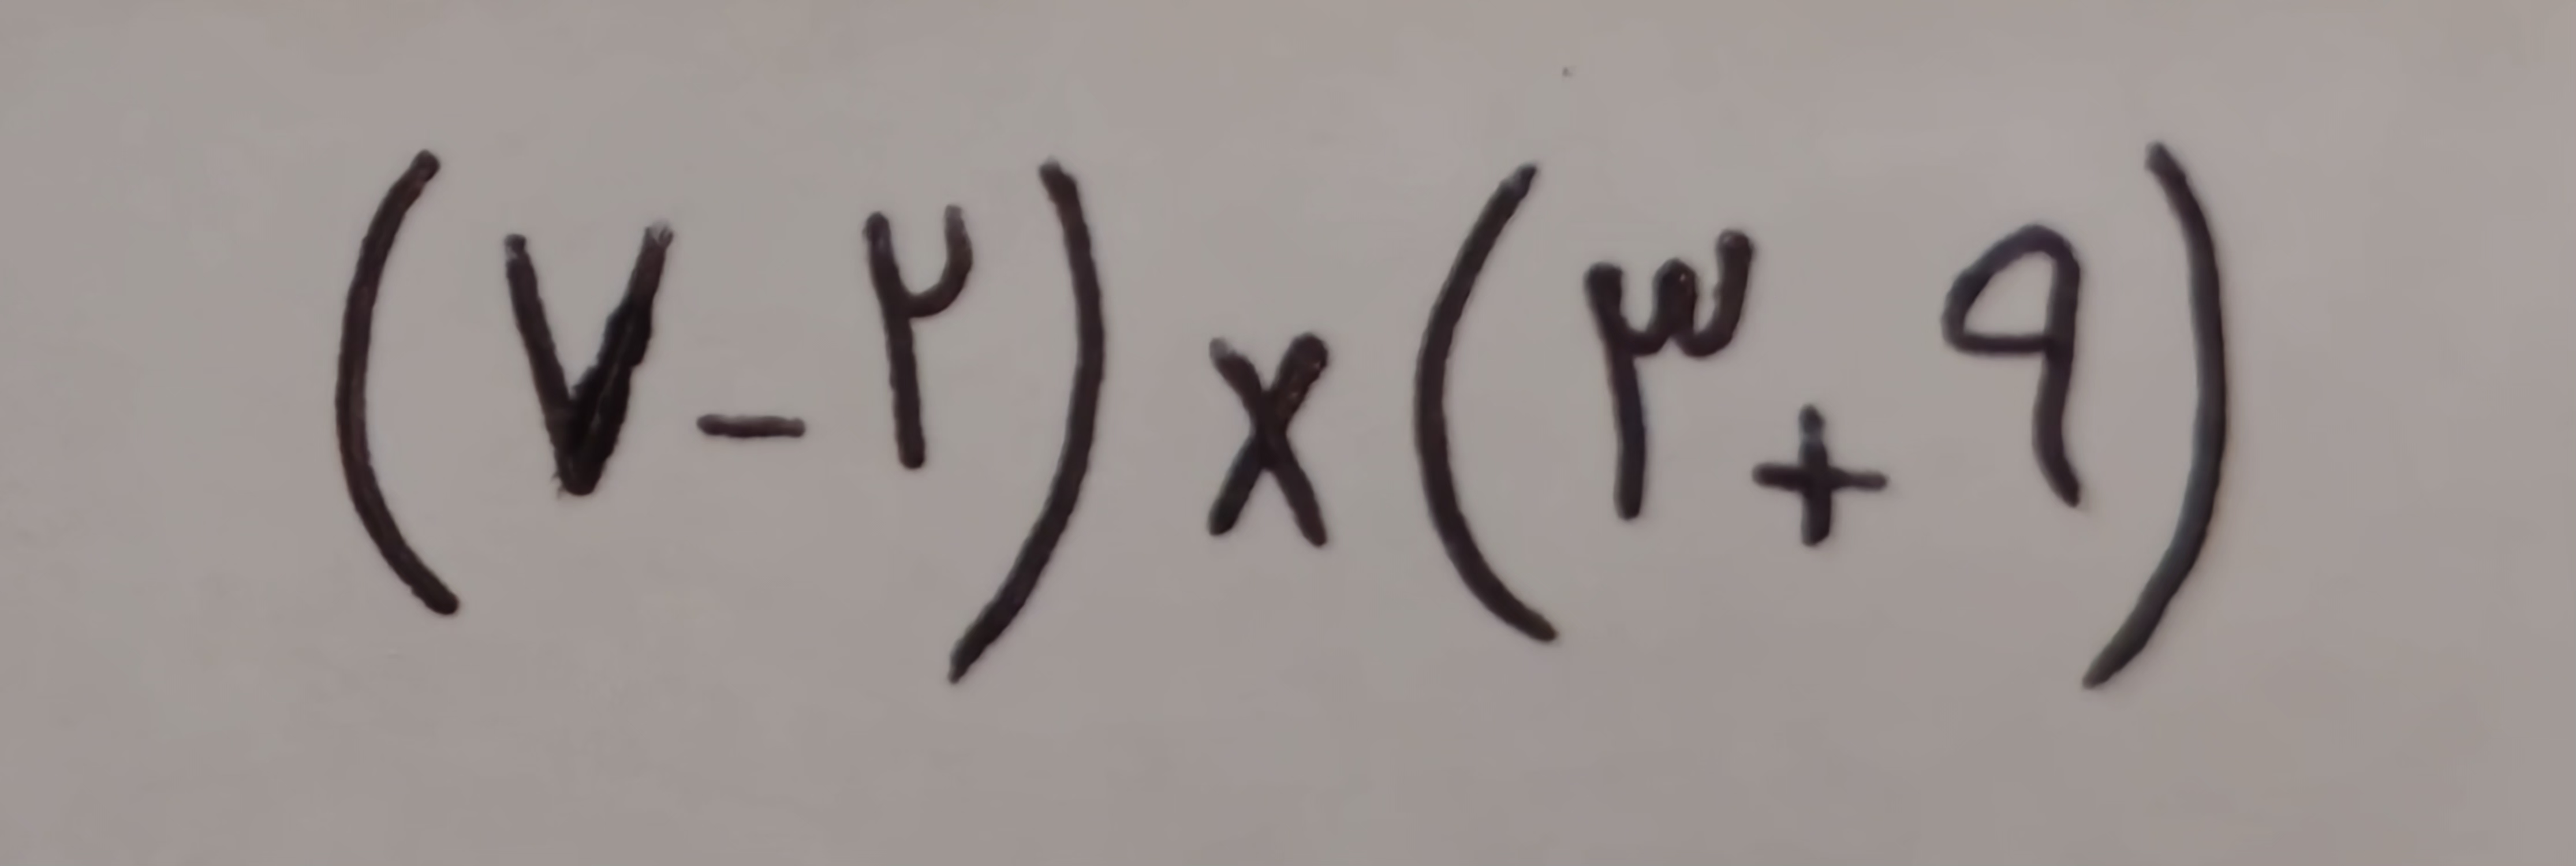 (۷-۲)×(۳+۹)